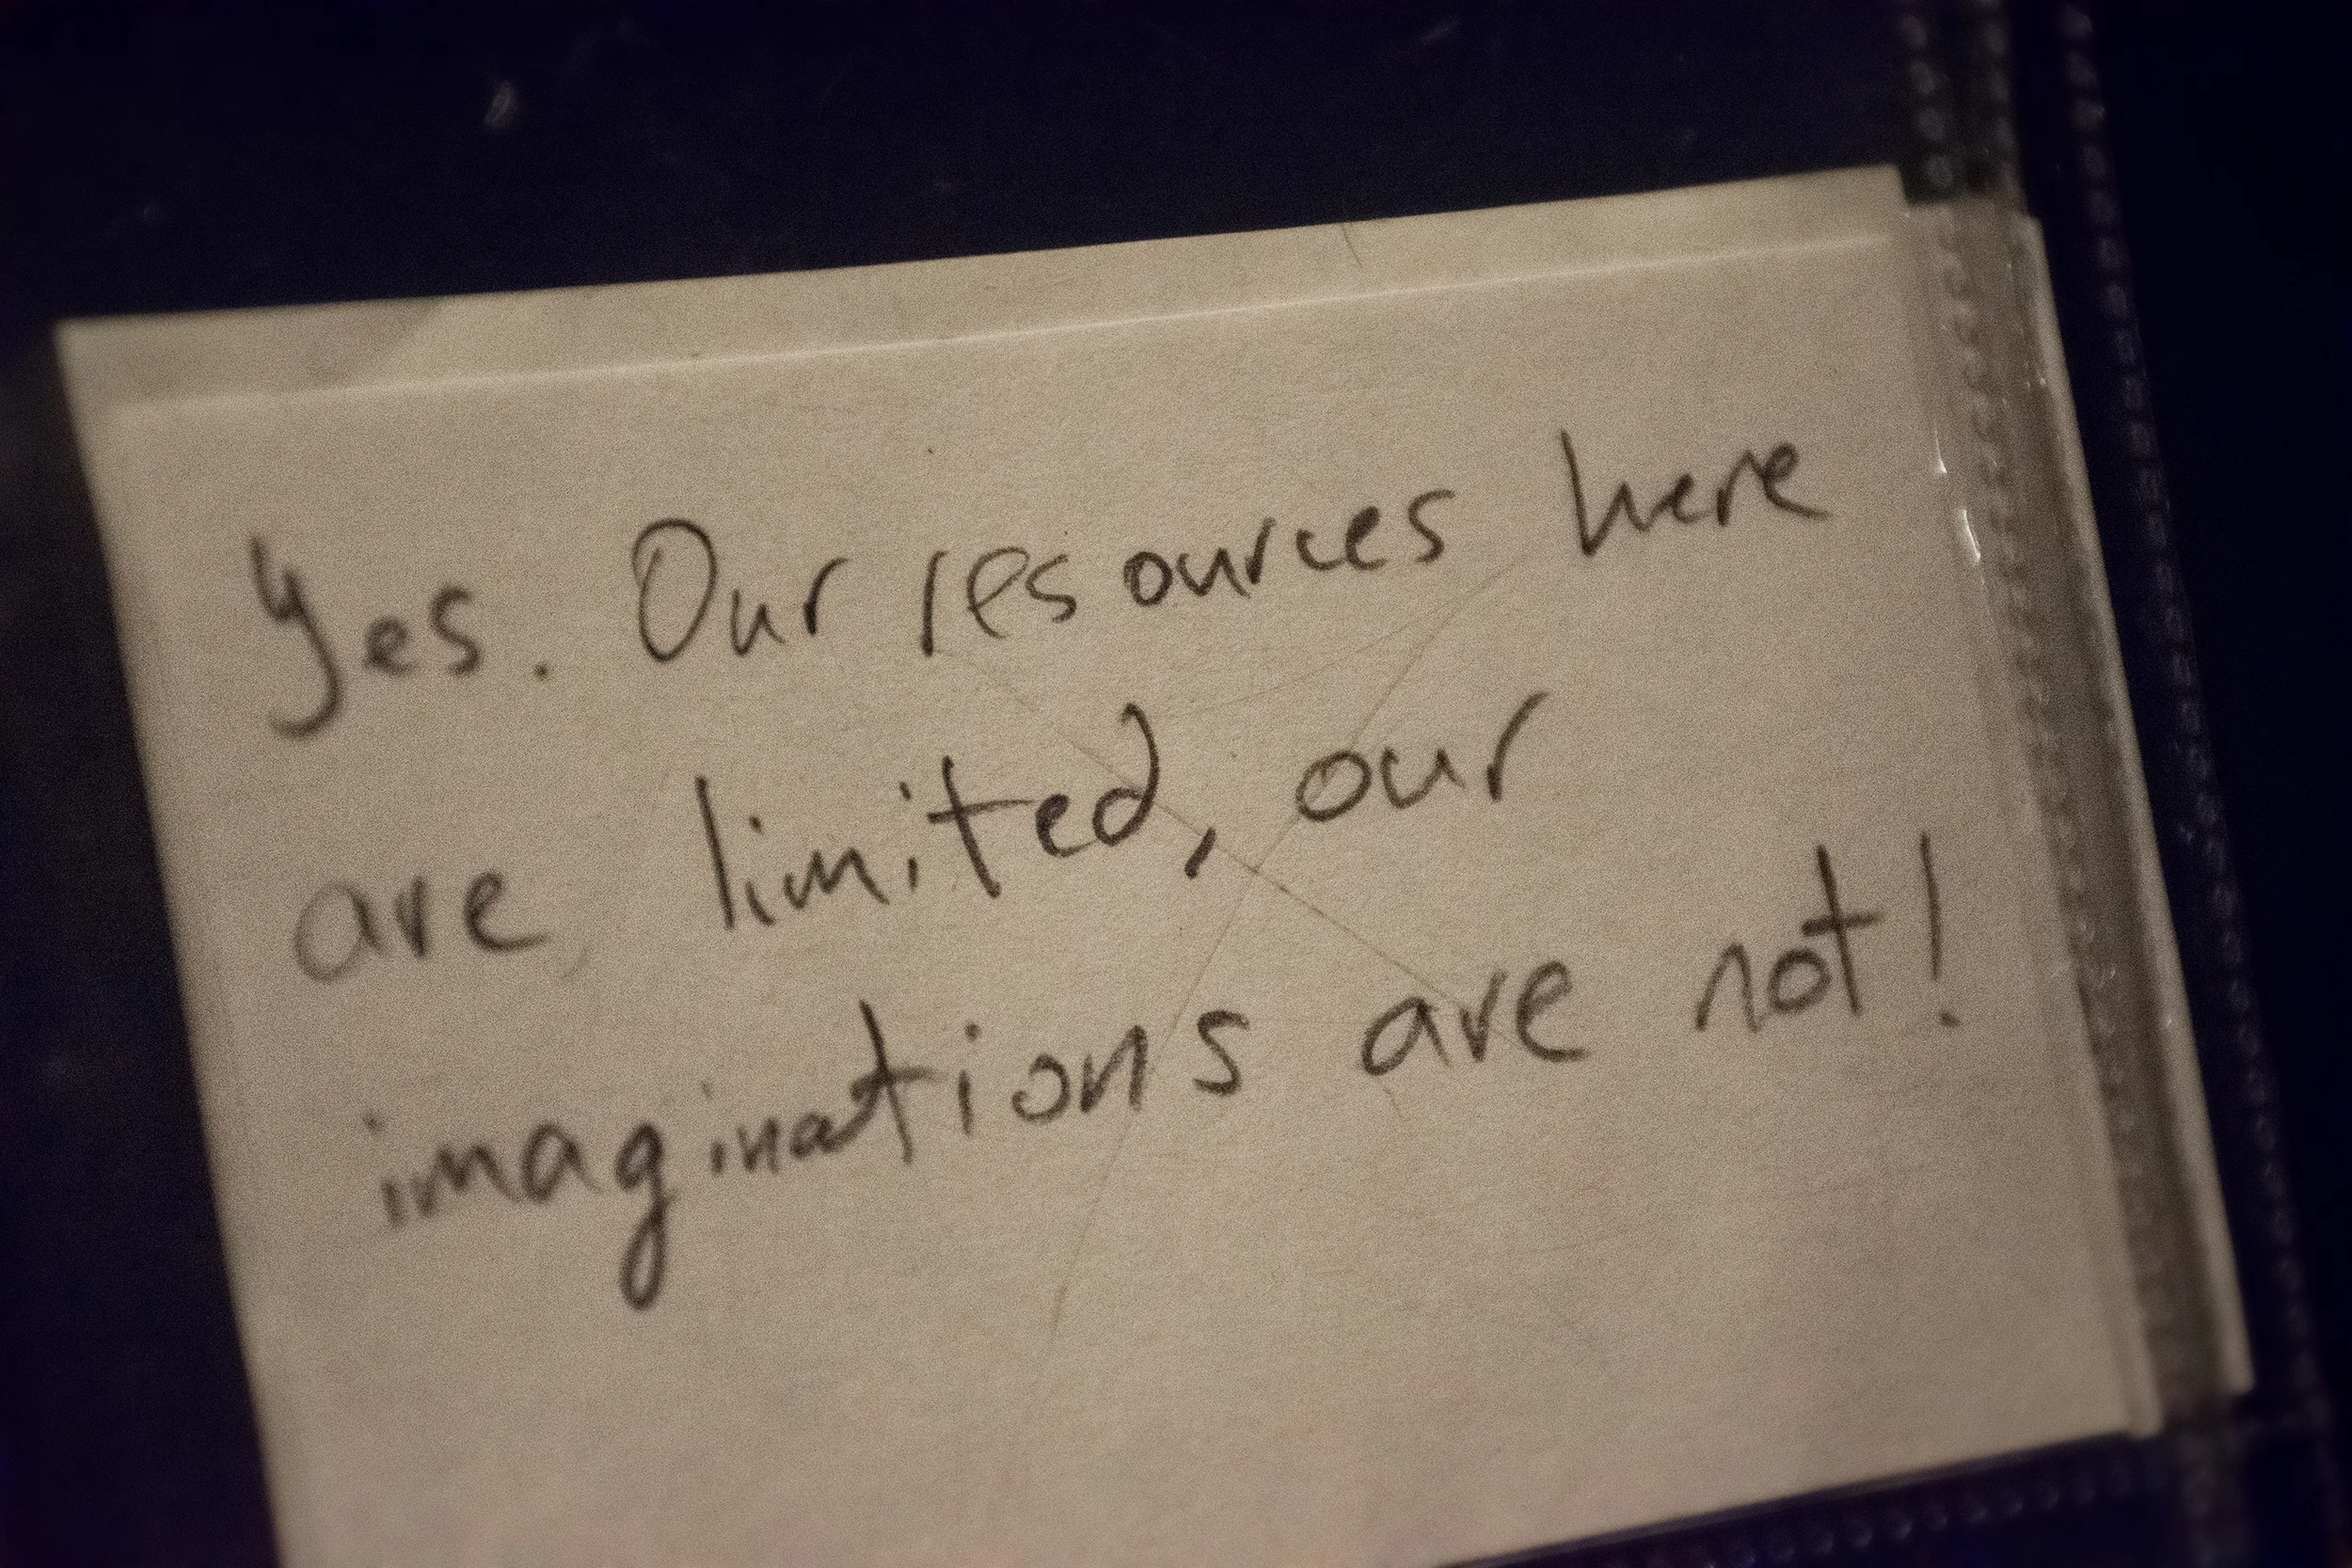 Yes. Our resources here
are limited, our
imaginations are not!